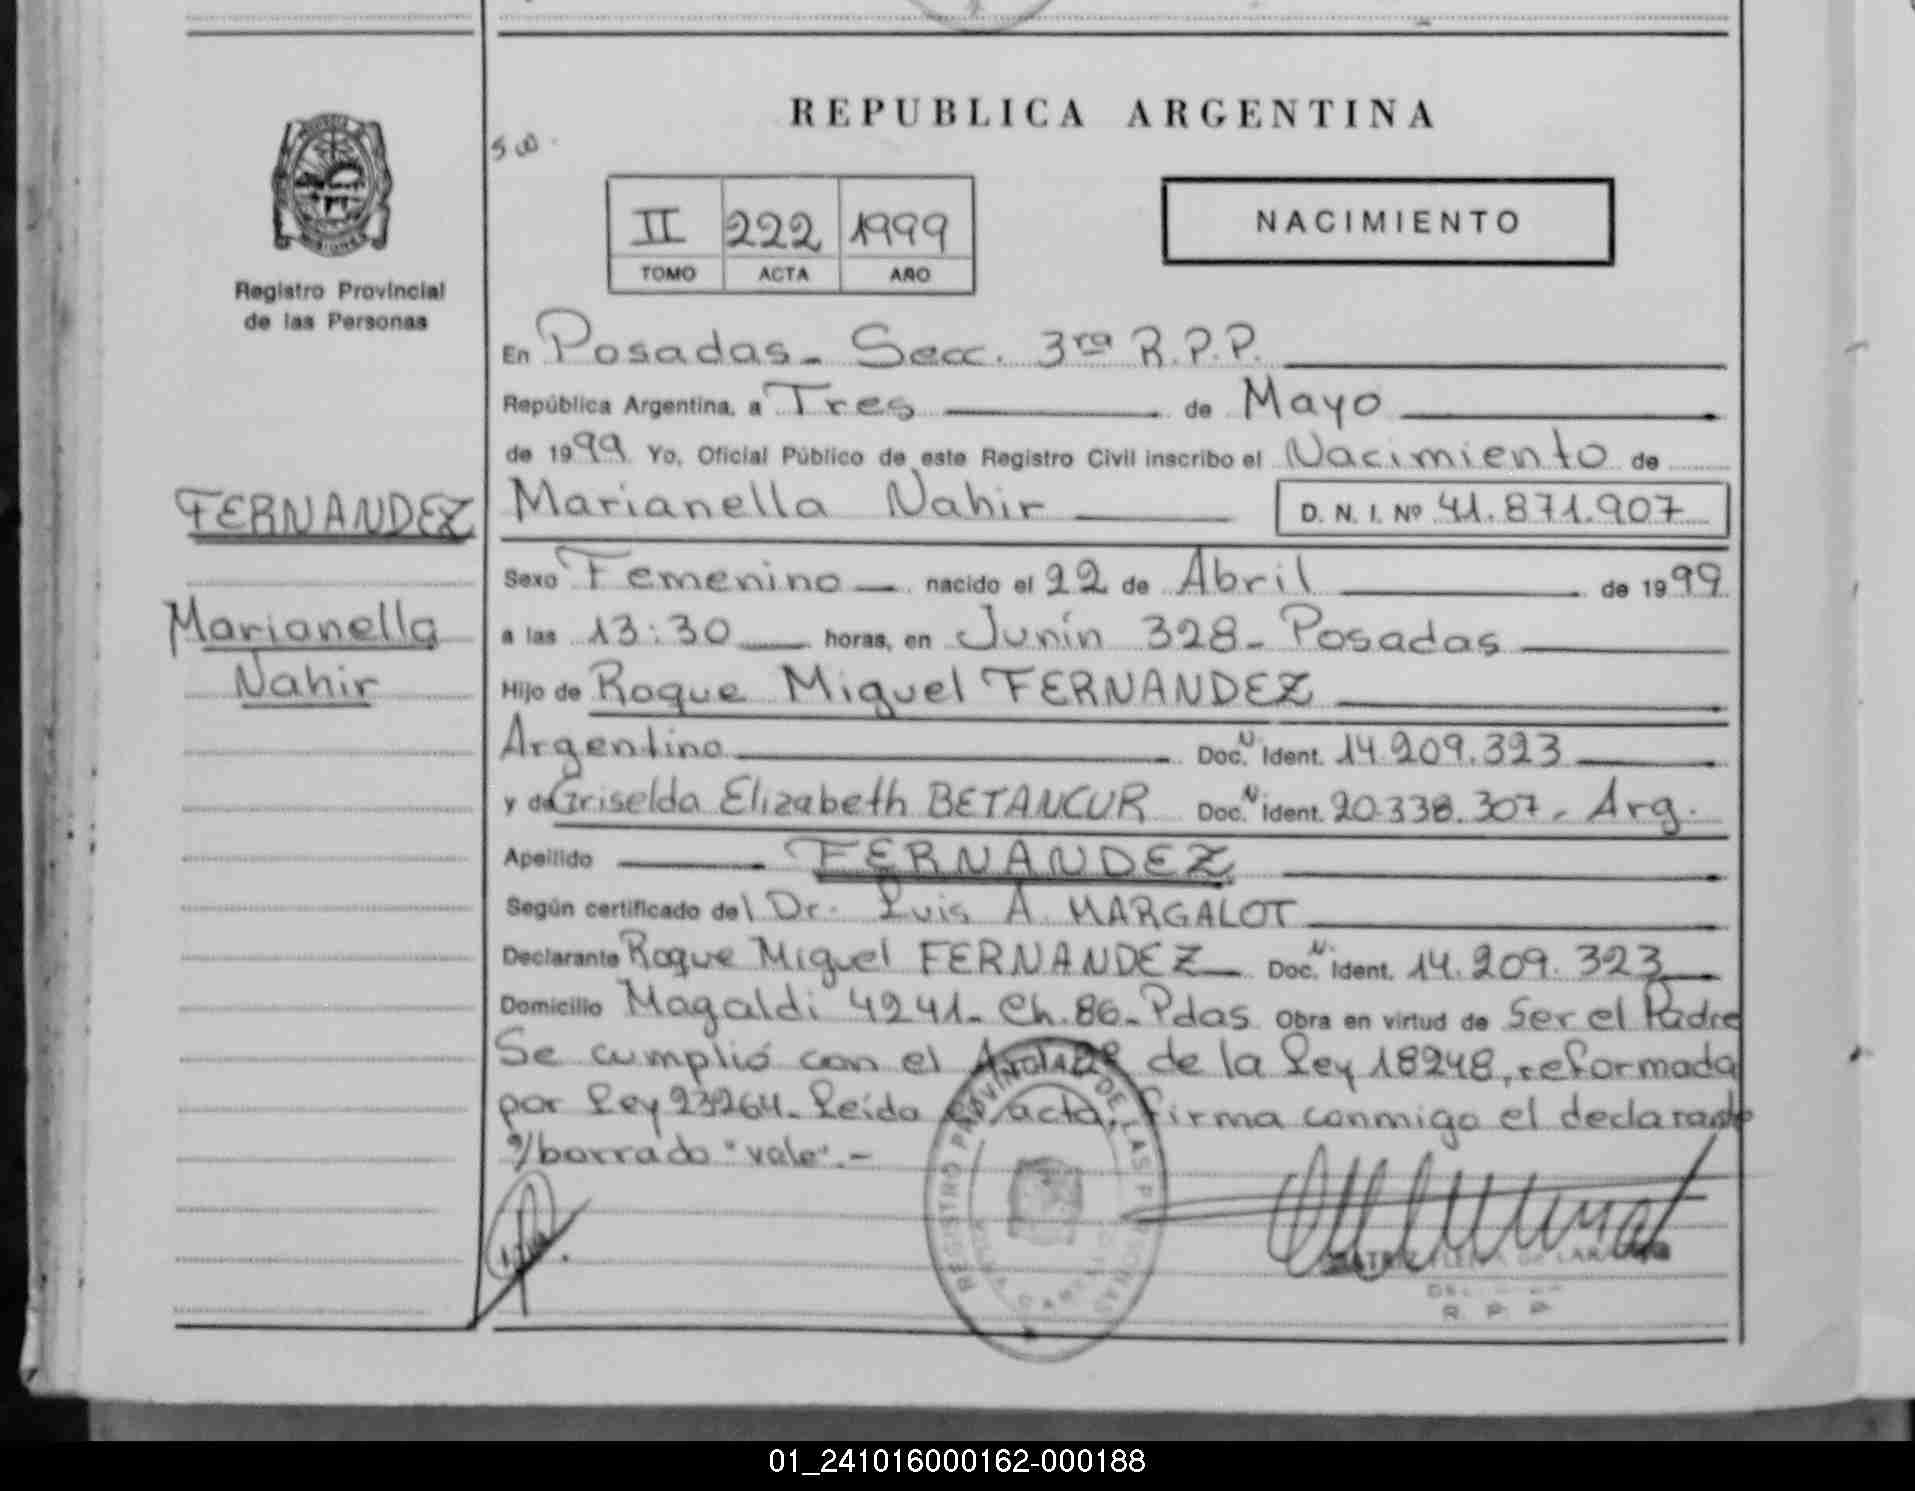 REPUBLICA ARGENTINA
II 222 1999
TOMO ACTA AÑO
NACIMIENTO
Registro Provincial
de las Personas
En Posadas - Secc. 3ra R.P.P.
República Argentina, a Tres de Mayo
de 1999 Yo, Oficial Público de este Registro Civil inscribo el Nacimiento de
FERNANDEZ
Marianella Nahir
D. N. I. Nº 41.871.907
Sexo Femenino nacido el 22 de Abril de 1999
Marianella
Nahir
a las 13:30 horas, en Junín 328 - Posadas
Hijo de Roque Miguel FERNANDEZ
Argentino Doc. N. Ident. 14.209.323
y de Griselda Elizabeth BETANCUR Doc. N. Ident. 20.338.307 - Arg.
Apellido FERNANDEZ
Según certificado del Dr. Luis A. MARGALOT
Declarante Roque Miguel FERNANDEZ Doc. N. Ident. 14.209.323
Domicilio Magaldi 4241 - Ch. 86 - Pdas Obra en virtud de Ser el Padre
Se cumplió con el de la Ley 18248, reformada
por Ley 23264. Leída el acta, firma conmigo el declarante
s/borrado "vale".-
REGISTRO PROVINCIAL DE LAS PERSONAS
R. P. P.
01_241016000162-000188